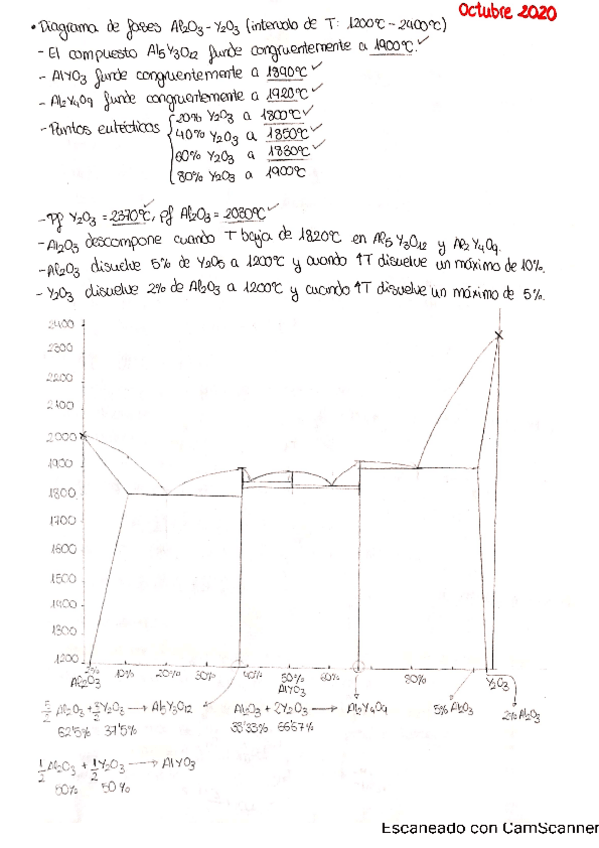 Octubre 2020
• Diagrama de fases Al2O3 - Y2O3 (intervalo de T: 1200℃ - 2400℃)
- El compuesto Al5Y3O12 funde congruentemente a 1900℃. ✓
- AlYO3 funde congruentemente a 1890℃ ✓
- Al2Y4O9 funde congruentemente a 1920℃ ✓
- Puntos eutécticos { 20% Y2O3 a 1800℃ ✓
40% Y2O3 a 1850℃ ✓
60% Y2O3 a 1830℃ ✓
80% Y2O3 a 1900℃
- pf Y2O3 = 2370℃ ✓, pf Al2O3 = 2030℃ ✓
- Al2O3 descompone cuando T baja de 1820℃ en Al5Y3O12 y Al2Y4O9.
- Al2O3 disuelve 5% de Y2O3 a 1200℃ y cuando ↑T disuelve un máximo de 10%.
- Y2O3 disuelve 2% de Al2O3 a 1200℃ y cuando ↑T disuelve un máximo de 5%.
2400
2300
2200
2100
2000
1900
1800
1700
1600
1500
1400
1300
1200
Al2O3 10% 20% 30% 40% 50% 60% 80% Y2O3
AlYO3
5% Al2O3 2% Al2O3
5/2 Al2O3 + 3/2 Y2O3 → Al5Y3O12 Al2O3 + 2Y2O3 → Al2Y4O9
62'5% 37'5% 33'33% 66'67%
1/2 Al2O3 + 1/2 Y2O3 → AlYO3
50% 50%
Escaneado con CamScanner